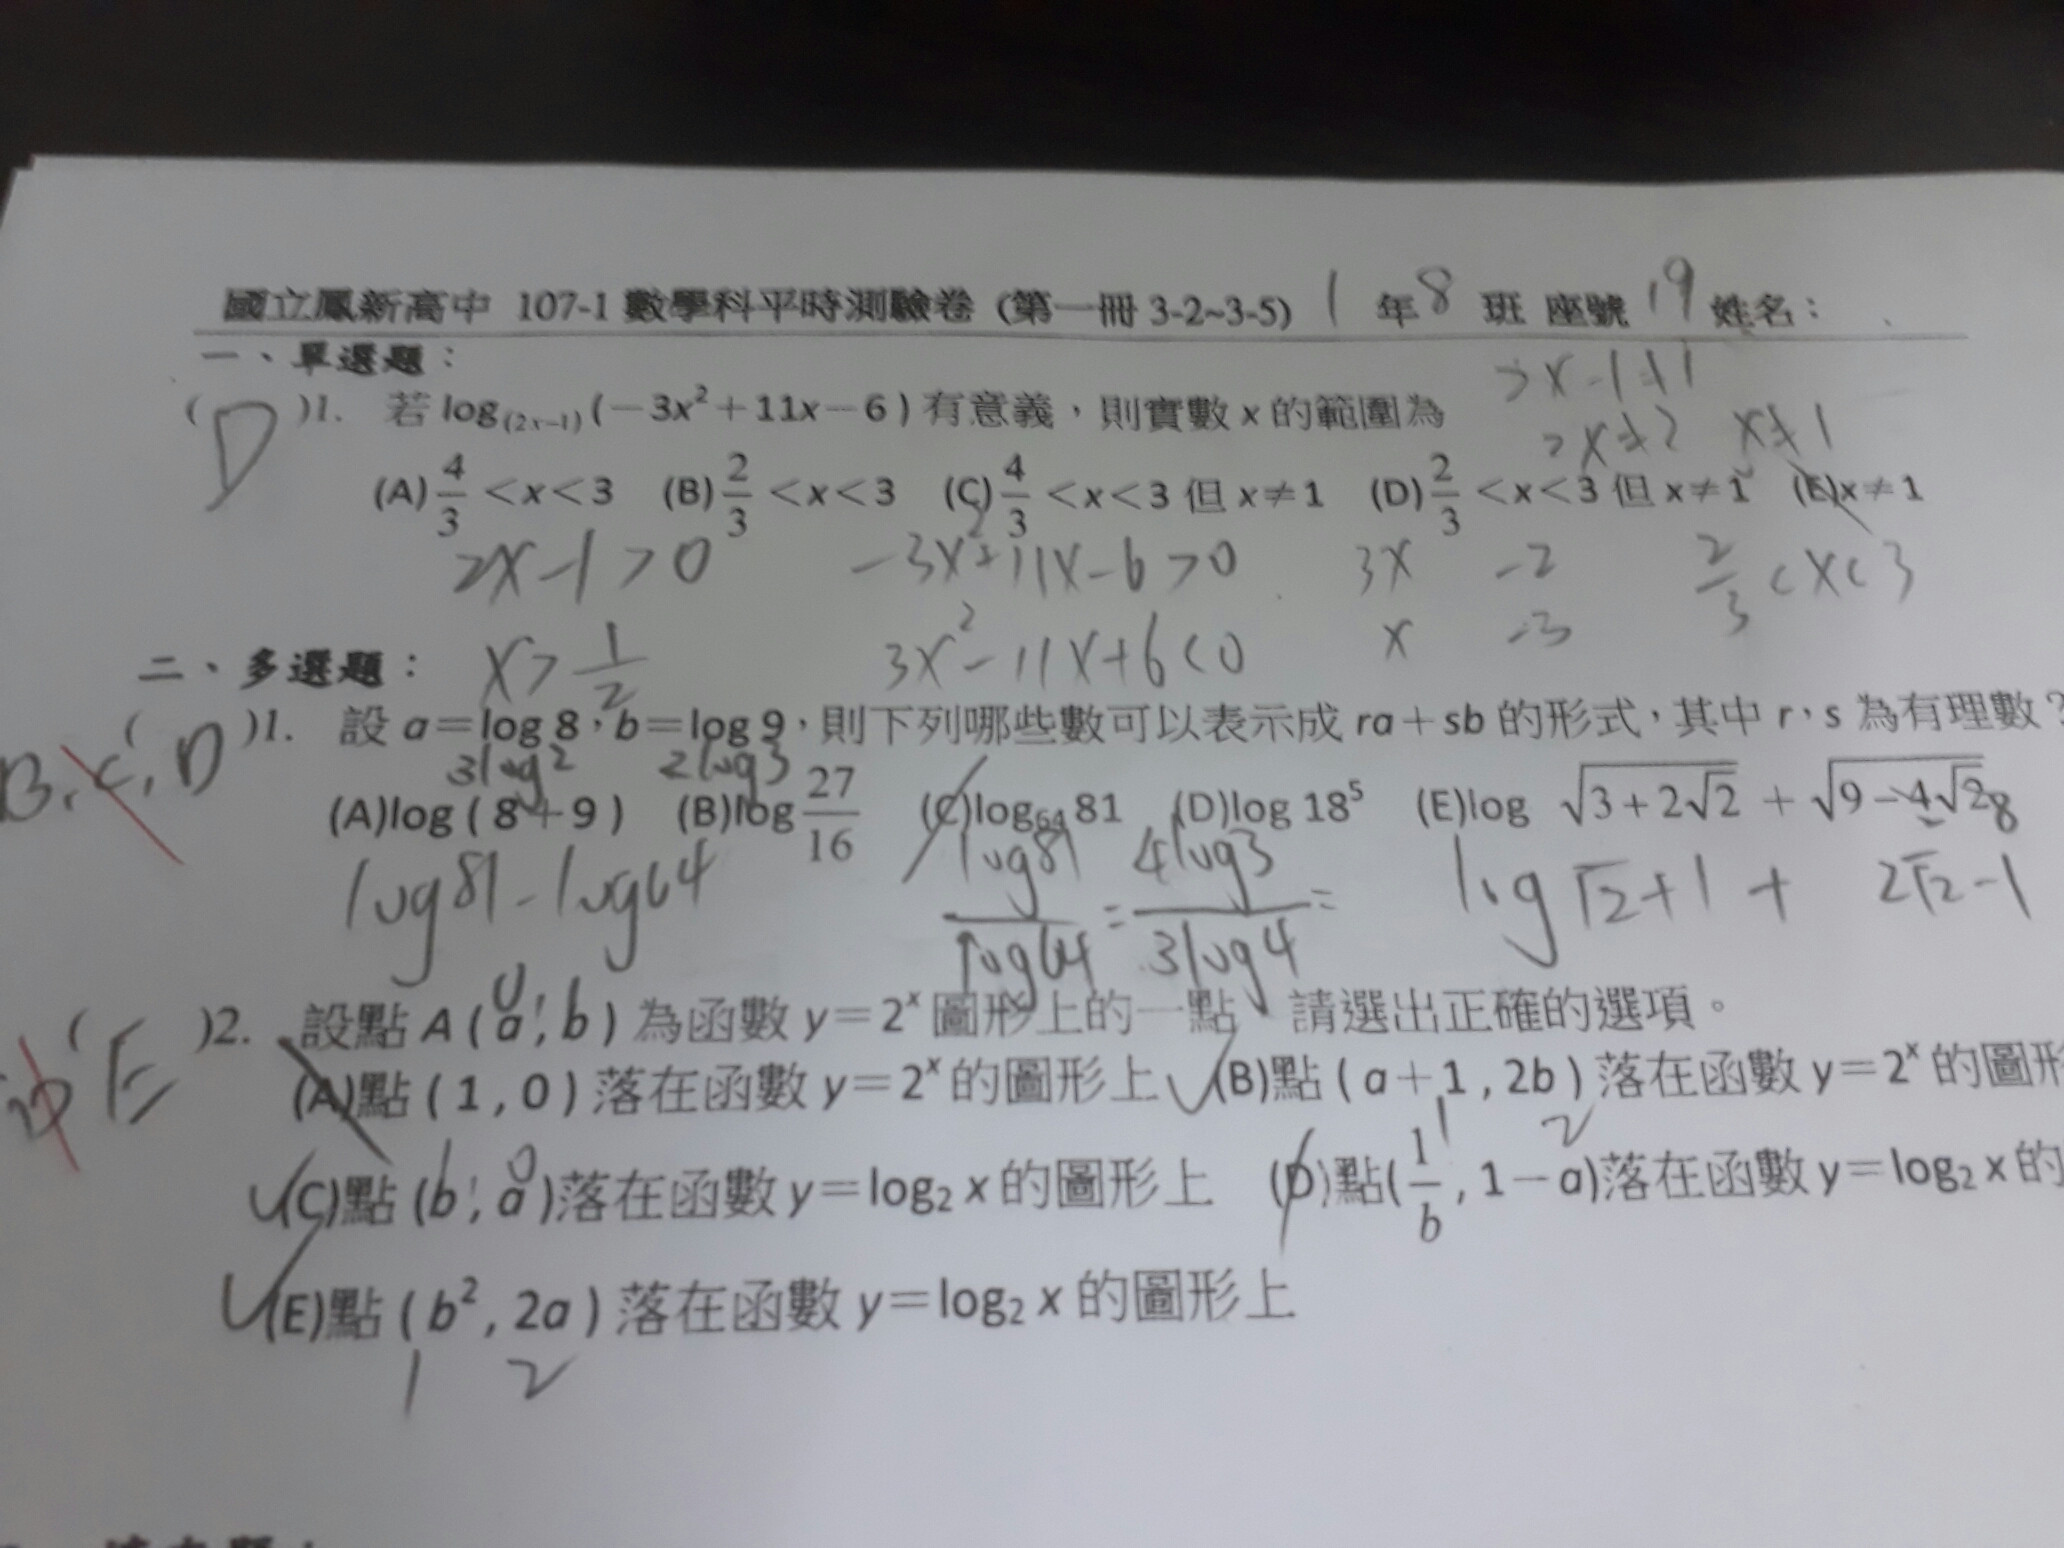 國立鳳新高中 107-1 數學科平時測驗卷 (第一冊 3-2~3-5) 1 年 8 班 座號 19 姓名：
一、單選題：
2x-1≠1
2x≠2 x≠1
( D )1. 若 log₍₂ₓ₋₁₎(－3x²＋11x－6) 有意義，則實數 x 的範圍為
(A) 4/3 ＜x＜3 (B) 2/3 ＜x＜3 (C) 4/3 ＜x＜3 但 x≠1 (D) 2/3 ＜x＜3 但 x≠1 (E)x≠1
2x-1>0 -3x²+11x-6>0 3x -2 2/3<x<3
x>1/2 3x²-11x+6<0 x -3
二、多選題：
B, C, D ( )1. 設 a＝log 8，b＝log 9，則下列哪些數可以表示成 ra＋sb 的形式，其中 r，s 為有理數？
3log2 2log3
(A)log ( 8＋9 ) (B)log 27/16 (C)log₆₄ 81 (D)log 18⁵ (E)log √(3＋2√2) ＋ √(9－4√2)
8
log81-log64 log81/log64 = 4log3/3log4 = log √2+1 + 2√2-1
( E )2. 設點 A ( a , b ) 為函數 y＝2ˣ 圖形上的一點 請選出正確的選項。
0 1
(A)點 ( 1 , 0 ) 落在函數 y＝2ˣ 的圖形上 (B)點 ( a＋1 , 2b ) 落在函數 y＝2ˣ 的圖形
1 2
(C)點 (b , a )落在函數 y＝log₂ x 的圖形上 (D)點( 1/b , 1－a)落在函數 y＝log₂ x 的
1 0
(E)點 ( b² , 2a ) 落在函數 y＝log₂ x 的圖形上
1 2